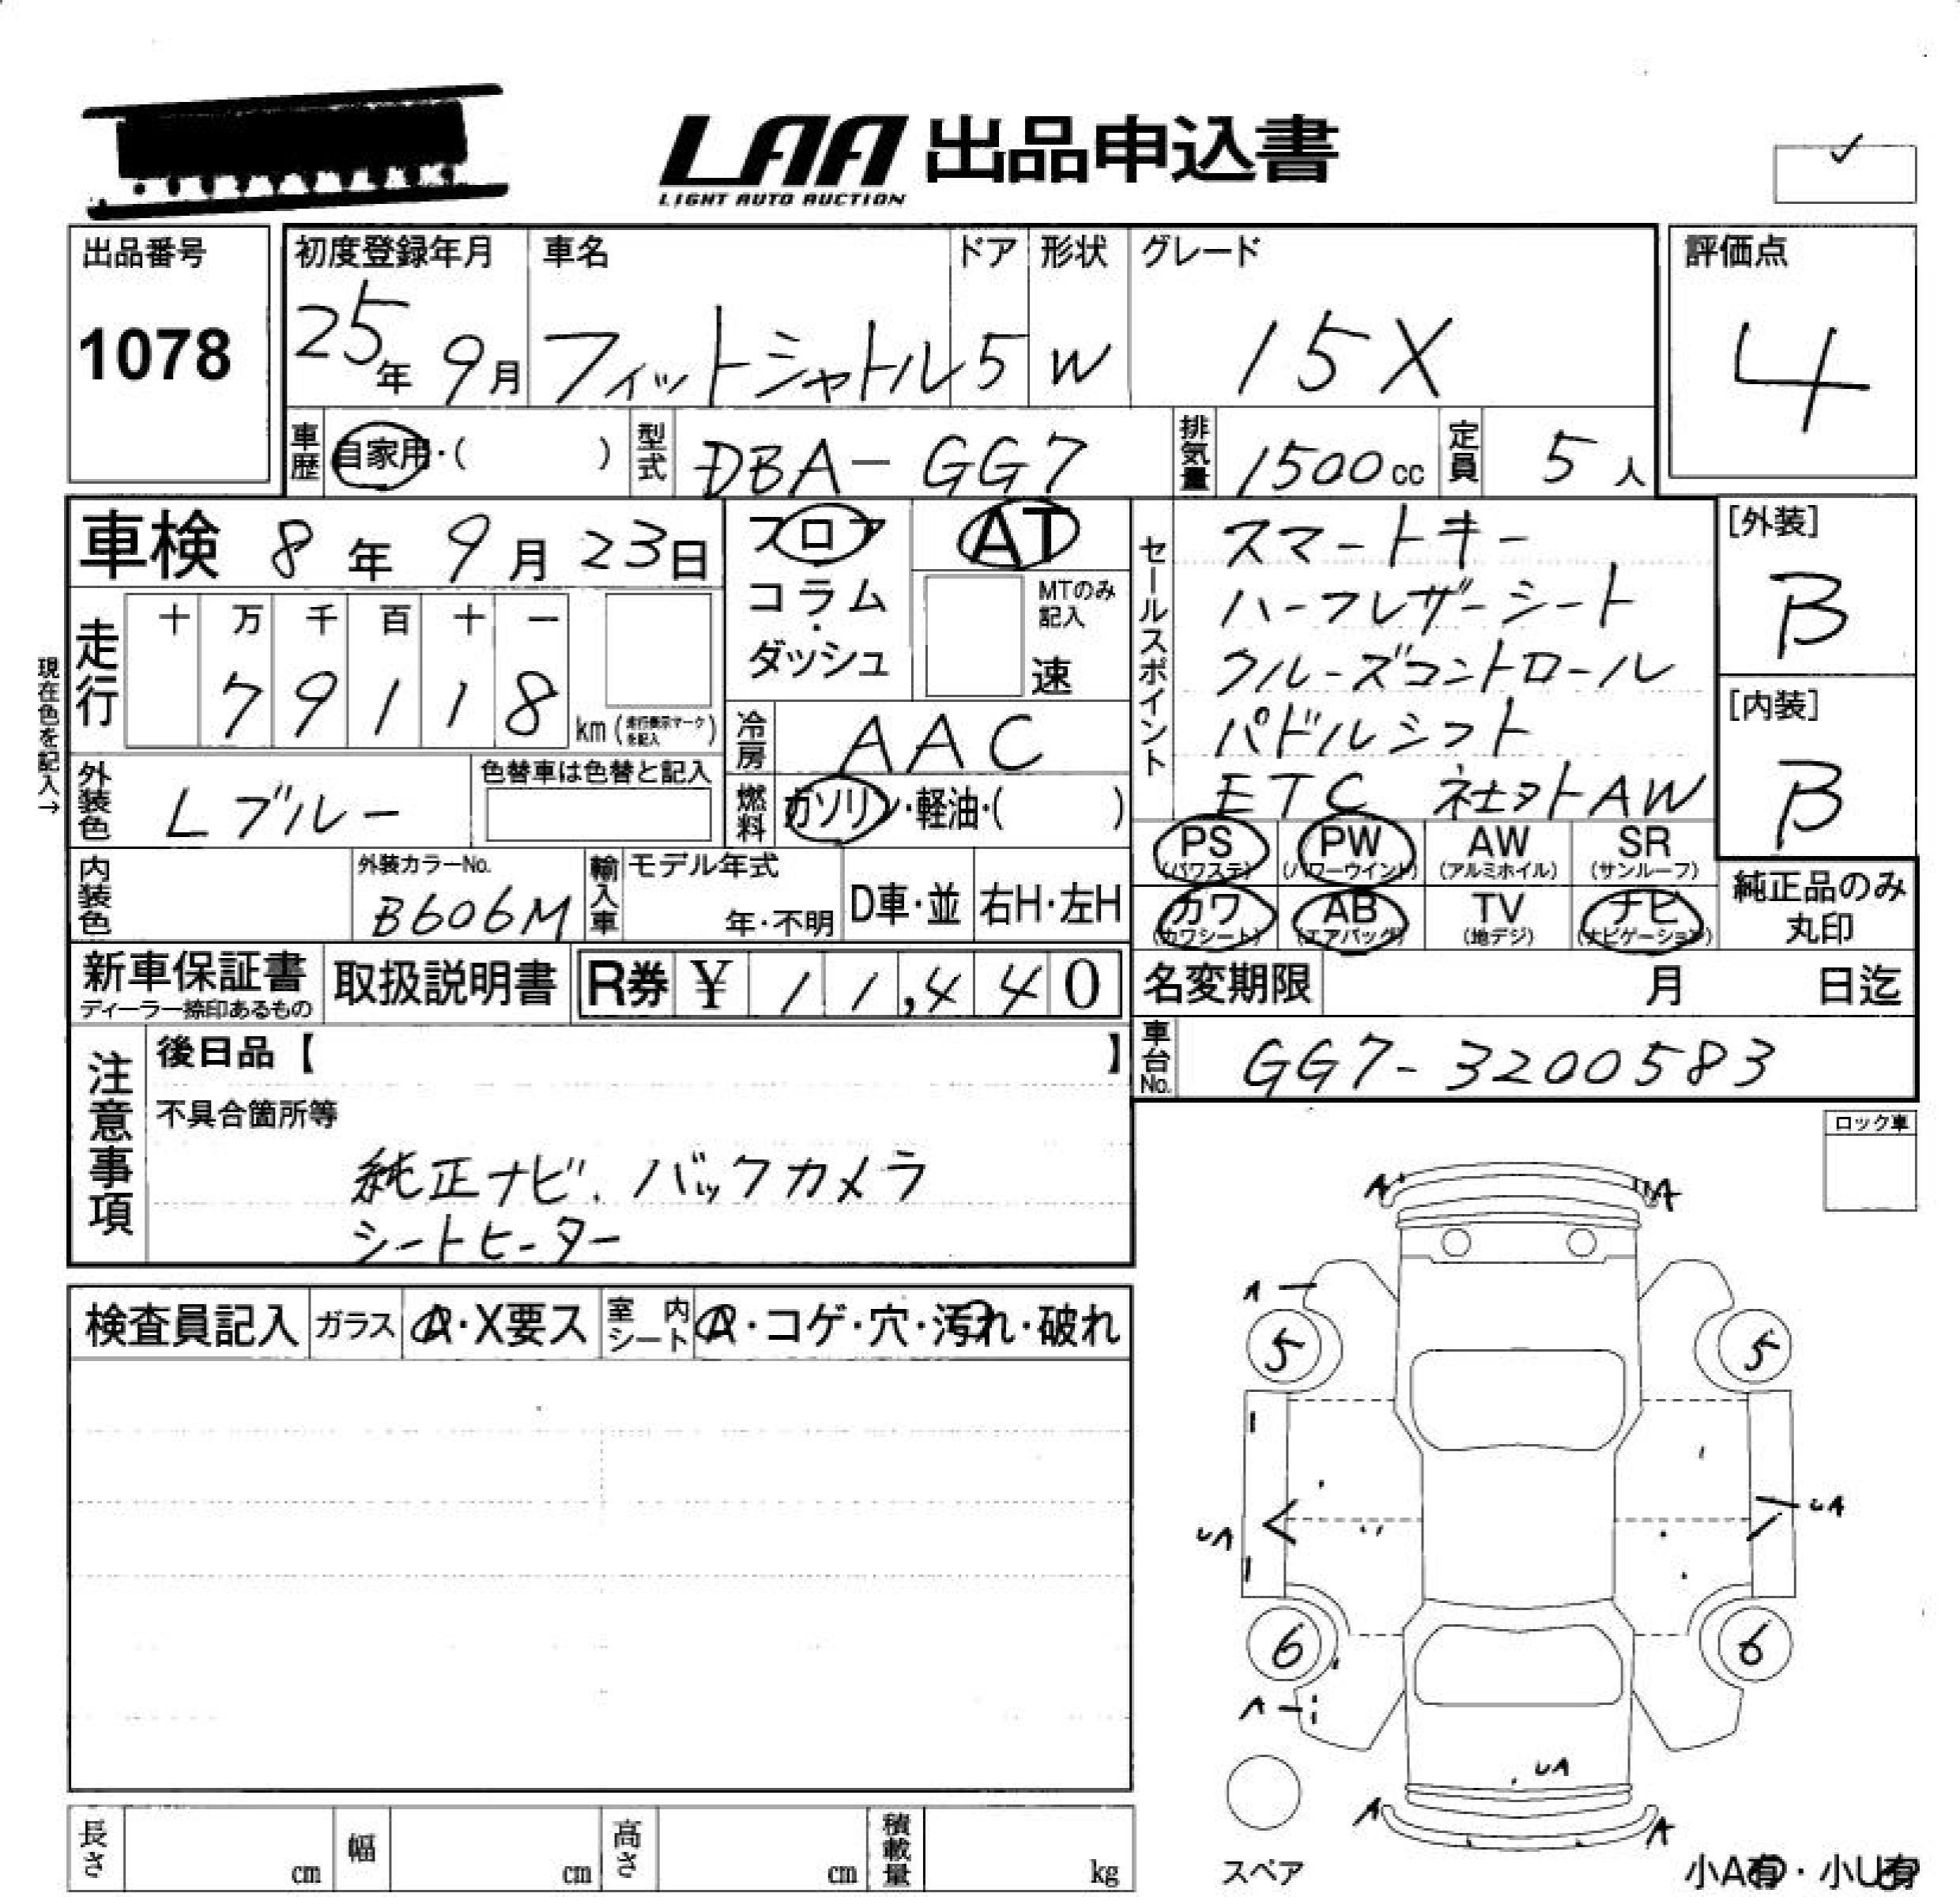 LAA 出品申込書
LIGHT AUTO AUCTION
出品番号
1078
初度登録年月
25年 9月
車名
フィットシャトル
ドア
5
形状
W
グレード
15X
評価点
4
車歴
自家用・( )
型式
DBA-GG7
排気量
1500cc
定員
5人
車検 8年 9月 23日
フロア
コラム
・
ダッシュ
AT
MTのみ
記入
速
セールスポイント
スマートキー
ハーフレザーシート
クルーズコントロール
パドルシフト
ETC 社外AW
[外装]
B
[内装]
B
現在色を記入→
走行
十 万 千 百 十 一
7 9 1 1 8
km (走行表示マークを記入)
冷房
AAC
外装色
Lブルー
色替車は色替と記入
燃料
ガソリン・軽油・( )
PS
(パワステ)
PW
(パワーウインド)
AW
(アルミホイル)
SR
(サンルーフ)
カワ
(カワシート)
AB
(エアバッグ)
TV
(地デジ)
ナビ
(ナビゲーション)
純正品のみ
丸印
内装色
外装カラーNo.
B606M
輸入車
モデル年式
年・不明
D車・並
右H・左H
新車保証書
ディーラー捺印あるもの
取扱説明書
R券 ¥ 11,440
名変期限
月 日迄
注意事項
後日品【 】
車台No.
GG7-3200583
不具合箇所等
純正ナビ、バックカメラ
シートヒーター
ロック車
検査員記入
ガラス
A・X要ス
室内シート
A・コゲ・穴・汚れ・破れ
A
A
A
5
5
UA
UA
6
6
A
UA
A
A
スペア
小A有・小U有
長さ
cm
幅
cm
高さ
cm
積載量
kg